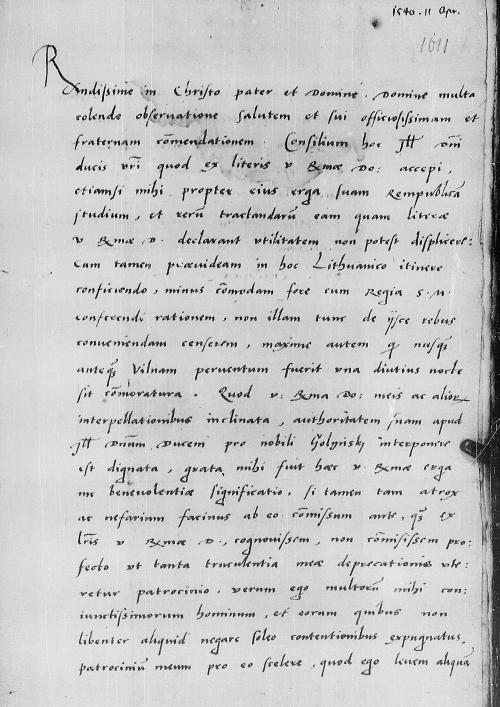 1540. 11 Apr.
1611
Rndissime in Christo pater et Domine. Domine multa
colende observatione salutem et sui officiosissimam et
fraternam cōmendationem. Consilium hoc Jll Dnī
ducis vrī quod ex literis v Rmae Do: accepi,
etiamsi mihi propter eius erga suam Rempublicā
studium, et rerū tractandarū eam quam literae
v Rmae D. declarant vtilitatem non potest displicere:
Cum tamen praevideam in hoc Lithuanico itinere
conficiendo, minus cōmodam fore cum Regia S. M.
conferendi rationem, non illam tunc de ijsce rebus
conveniendam censerem, maxime autem q nusq
anteq Vilnam perventum fuerit vna diutius nocte
sit cōmoratura. Quod v: Rma Do: meis ac alior
interpellationibus inclinata, authoritatem suam apud
Jll Dnum Ducem pro nobili Golynski interponere
est dignata, grata mihi fuit haec v. Rmae erga
me benevolentiae significatio, si tamen tam atrox
ac nefarium facinus ab eo cōmissum ante, q ex
lrīs v Rmae D., cognovissem, non cōmisissem pro-
fecto vt tanta truculentia meae deprecationis vte-
retur patrocinio, verum ego multorū mihi con:
iunctissimorum hominum, et eorum quibus non
libenter aliquid negare soleo contentionibus expugnatus,
patrociniū meum pro eo scelere, quod ego levem aliquā